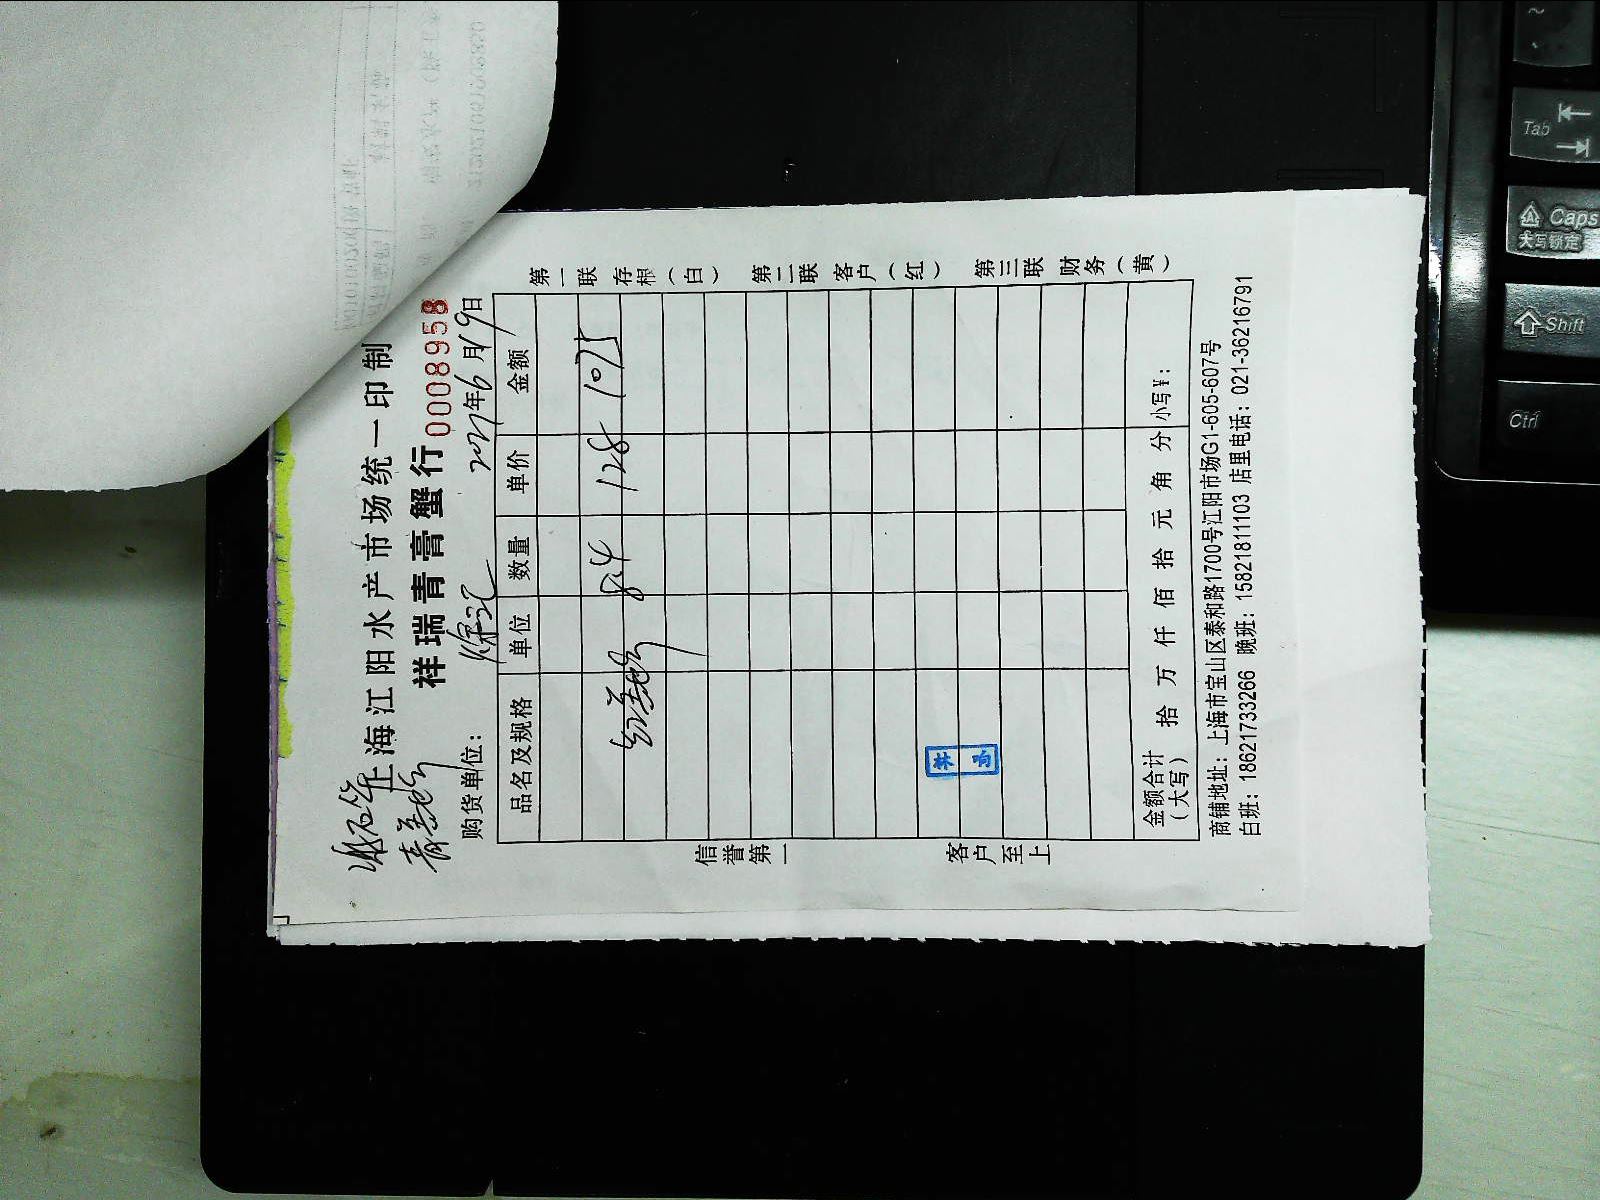 上海江阳水产市场统一印制
祥瑞青膏蟹行
0008958
购货单位：
2021年6月19日
品名及规格 单位 数量 单价 金额
8.4 128 1075
金额合计（大写） 拾 万 仟 佰 拾 元 角 分 小写¥：
商铺地址：上海市宝山区泰和路1700号江阳市场G1-605-607号
白班：18621733266 晚班：15821811103 店里电话：021-36216791
第一联 存根（白） 第二联 客户（红） 第三联 财务（黄）
信誉第一 客户至上
Tab
Caps
大写锁定
Shift
Ctrl